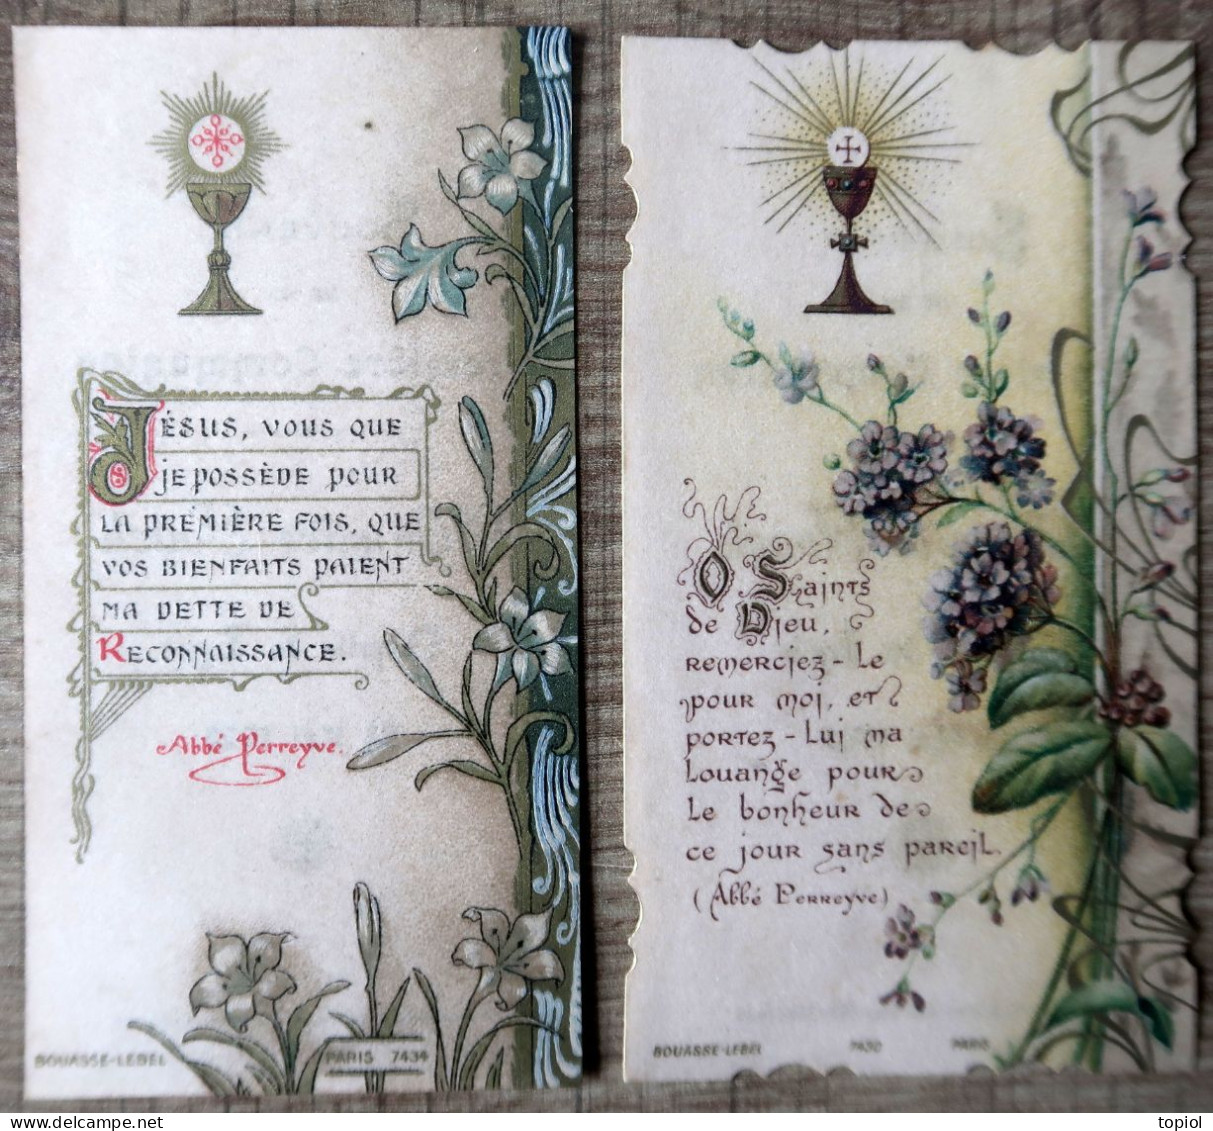 JÉSUS, VOUS QUE
JE POSSÈDE POUR
LA PREMIÈRE FOIS, QUE
VOS BIENFAITS PAIENT
MA DETTE DE
RECONNAISSANCE.
Abbé Perreyve.
BOUASSE-LEBEL
PARIS 7434
O Saints
de Dieu,
remerciez-Le
pour moi, et
portez-Lui ma
louange pour
le bonheur de
ce jour sans pareil.
(Abbé Perreyve)
BOUASSE-LEBEL
7430
PARIS
topiol